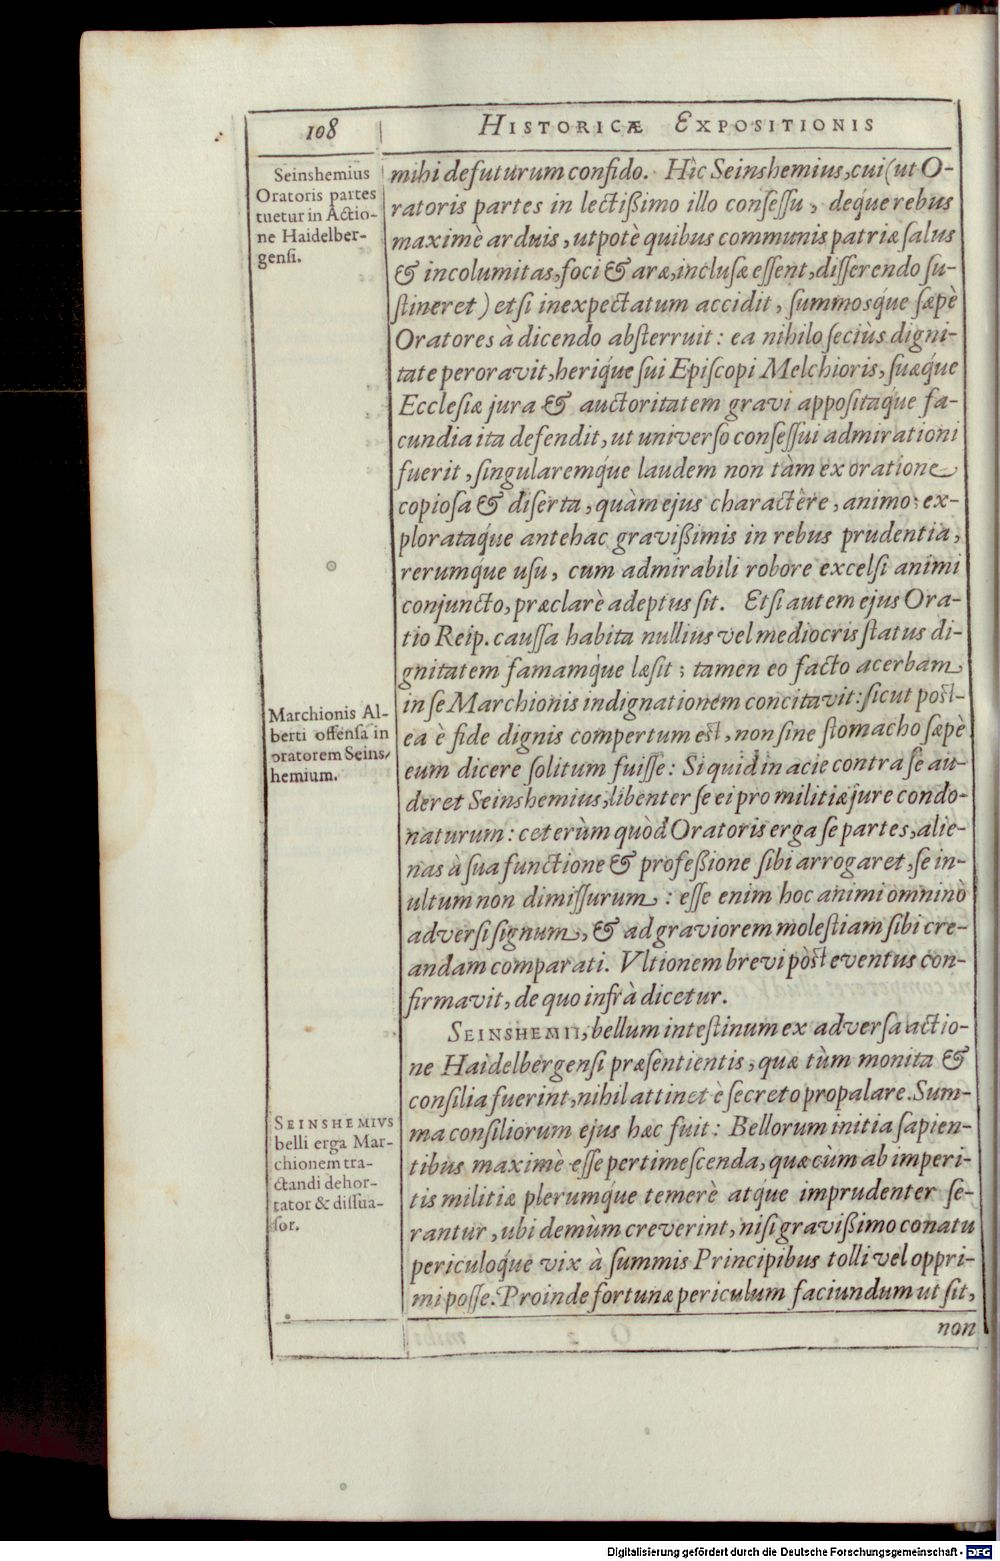 108
HISTORICÆ EXPOSITIONIS
Seinshemius
Oratoris partes
tuetur in Actio-
ne Haidelber-
gensi.
mihi defuturum confido. Hìc Seinshemius, cui (ut O-
ratoris partes in lectißimo illo consessu, deq́ue rebus
maximè arduis, utpotè quibus communis patriæ salus
& incolumitas, foci & aræ, inclusæ essent, disserendo su-
stineret) etsi inexpectatum accidit, summosq́ue sæpè
Oratores à dicendo absterruit: ea nihilo seciùs digni-
tate peroravit, heriq́ue sui Episcopi Melchioris, suæq́ue
Ecclesiæ jura & auctoritatem gravi appositaq́ue fa-
cundia ita defendit, ut universo consessui admirationi
fuerit, singularemq́ue laudem non tàm ex oratione
copiosa & diserta, quàm ejus charactère, animo; ex-
plorataq́ue antehac gravißimis in rebus prudentia,
rerumq́ue usu, cum admirabili robore excelsi animi
conjuncto, præclarè adeptus sit. Etsi autem ejus Ora-
tio Reip. caussa habita nullius vel mediocris status di-
gnitatem famamq́ue læsit; tamen eo facto acerbam
in se Marchionis indignationem concitavit: sicut post-
ea è fide dignis compertum est, non sine stomacho sæpè
eum dicere solitum fuisse: Si quid in acie contra se au-
deret Seinshemius, libenter se ei pro militiæ jure condo-
naturum: ceterùm quòd Oratoris erga se partes, alie-
nas à sua functione & profeßione sibi arrogaret, se in-
ultum non dimissurum: esse enim hoc animi omninò
adversi signum, & ad graviorem molestiam sibi cre-
andam comparati. Vltionem brevi pòst eventus con-
firmavit, de quo infrà dicetur.
Marchionis Al-
berti offensa in
oratorem Seins-
hemium.
SEINSHEMII, bellum intestinum ex adversa actio-
ne Haidelbergensi præsentientis, quæ tùm monita &
consilia fuerint, nihil attinet è secreto propalare. Sum-
ma consiliorum ejus hæc fuit: Bellorum initia sapien-
tibus maximè esse pertimescenda, quæ cùm ab imperi-
tis militiæ plerumq́ue temerè atq́ue imprudenter se-
rantur, ubi demùm creverint, nisi gravißimo conatu
periculoq́ue vix à summis Principibus tolli vel oppri-
mi posse. Proinde fortunæ periculum faciundum ut sit,
SEINSHEMIVS
belli erga Mar-
chionem tra-
ctandi dehor-
tator & dissua-
sor.
non
Digitalisierung gefördert durch die Deutsche Forschungsgemeinschaft - DFG